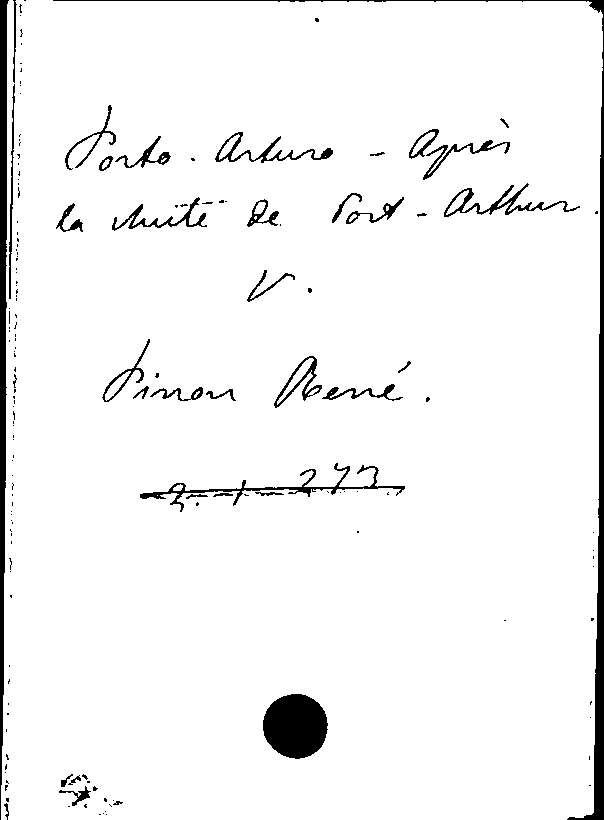 Porto-Arturo - Après
la chute de Port-Arthur.
V.
Pinon René.